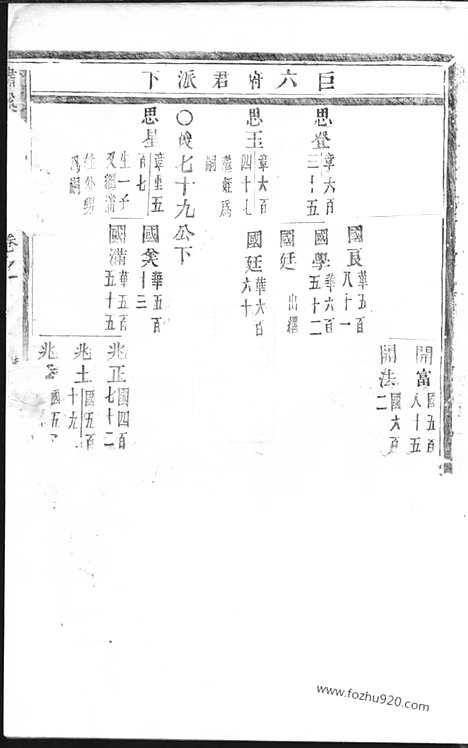 巨六府君派下
開富 國五百八十五
開法 國六百二
國良 華五百八十一
思登 章六百三十五
國學 華六百五十二
國廷 出繼
思玉 章六百四十七 繼姪爲嗣
國廷 華六百六十
○俊七十九公下
思星
生一子又繼
外甥爲嗣
國矣 華五百十三
國滿 華五百五十五
兆正 國四百七十二
兆土 國五百十九
兆
國五
卷之一
www.fozhu920.com